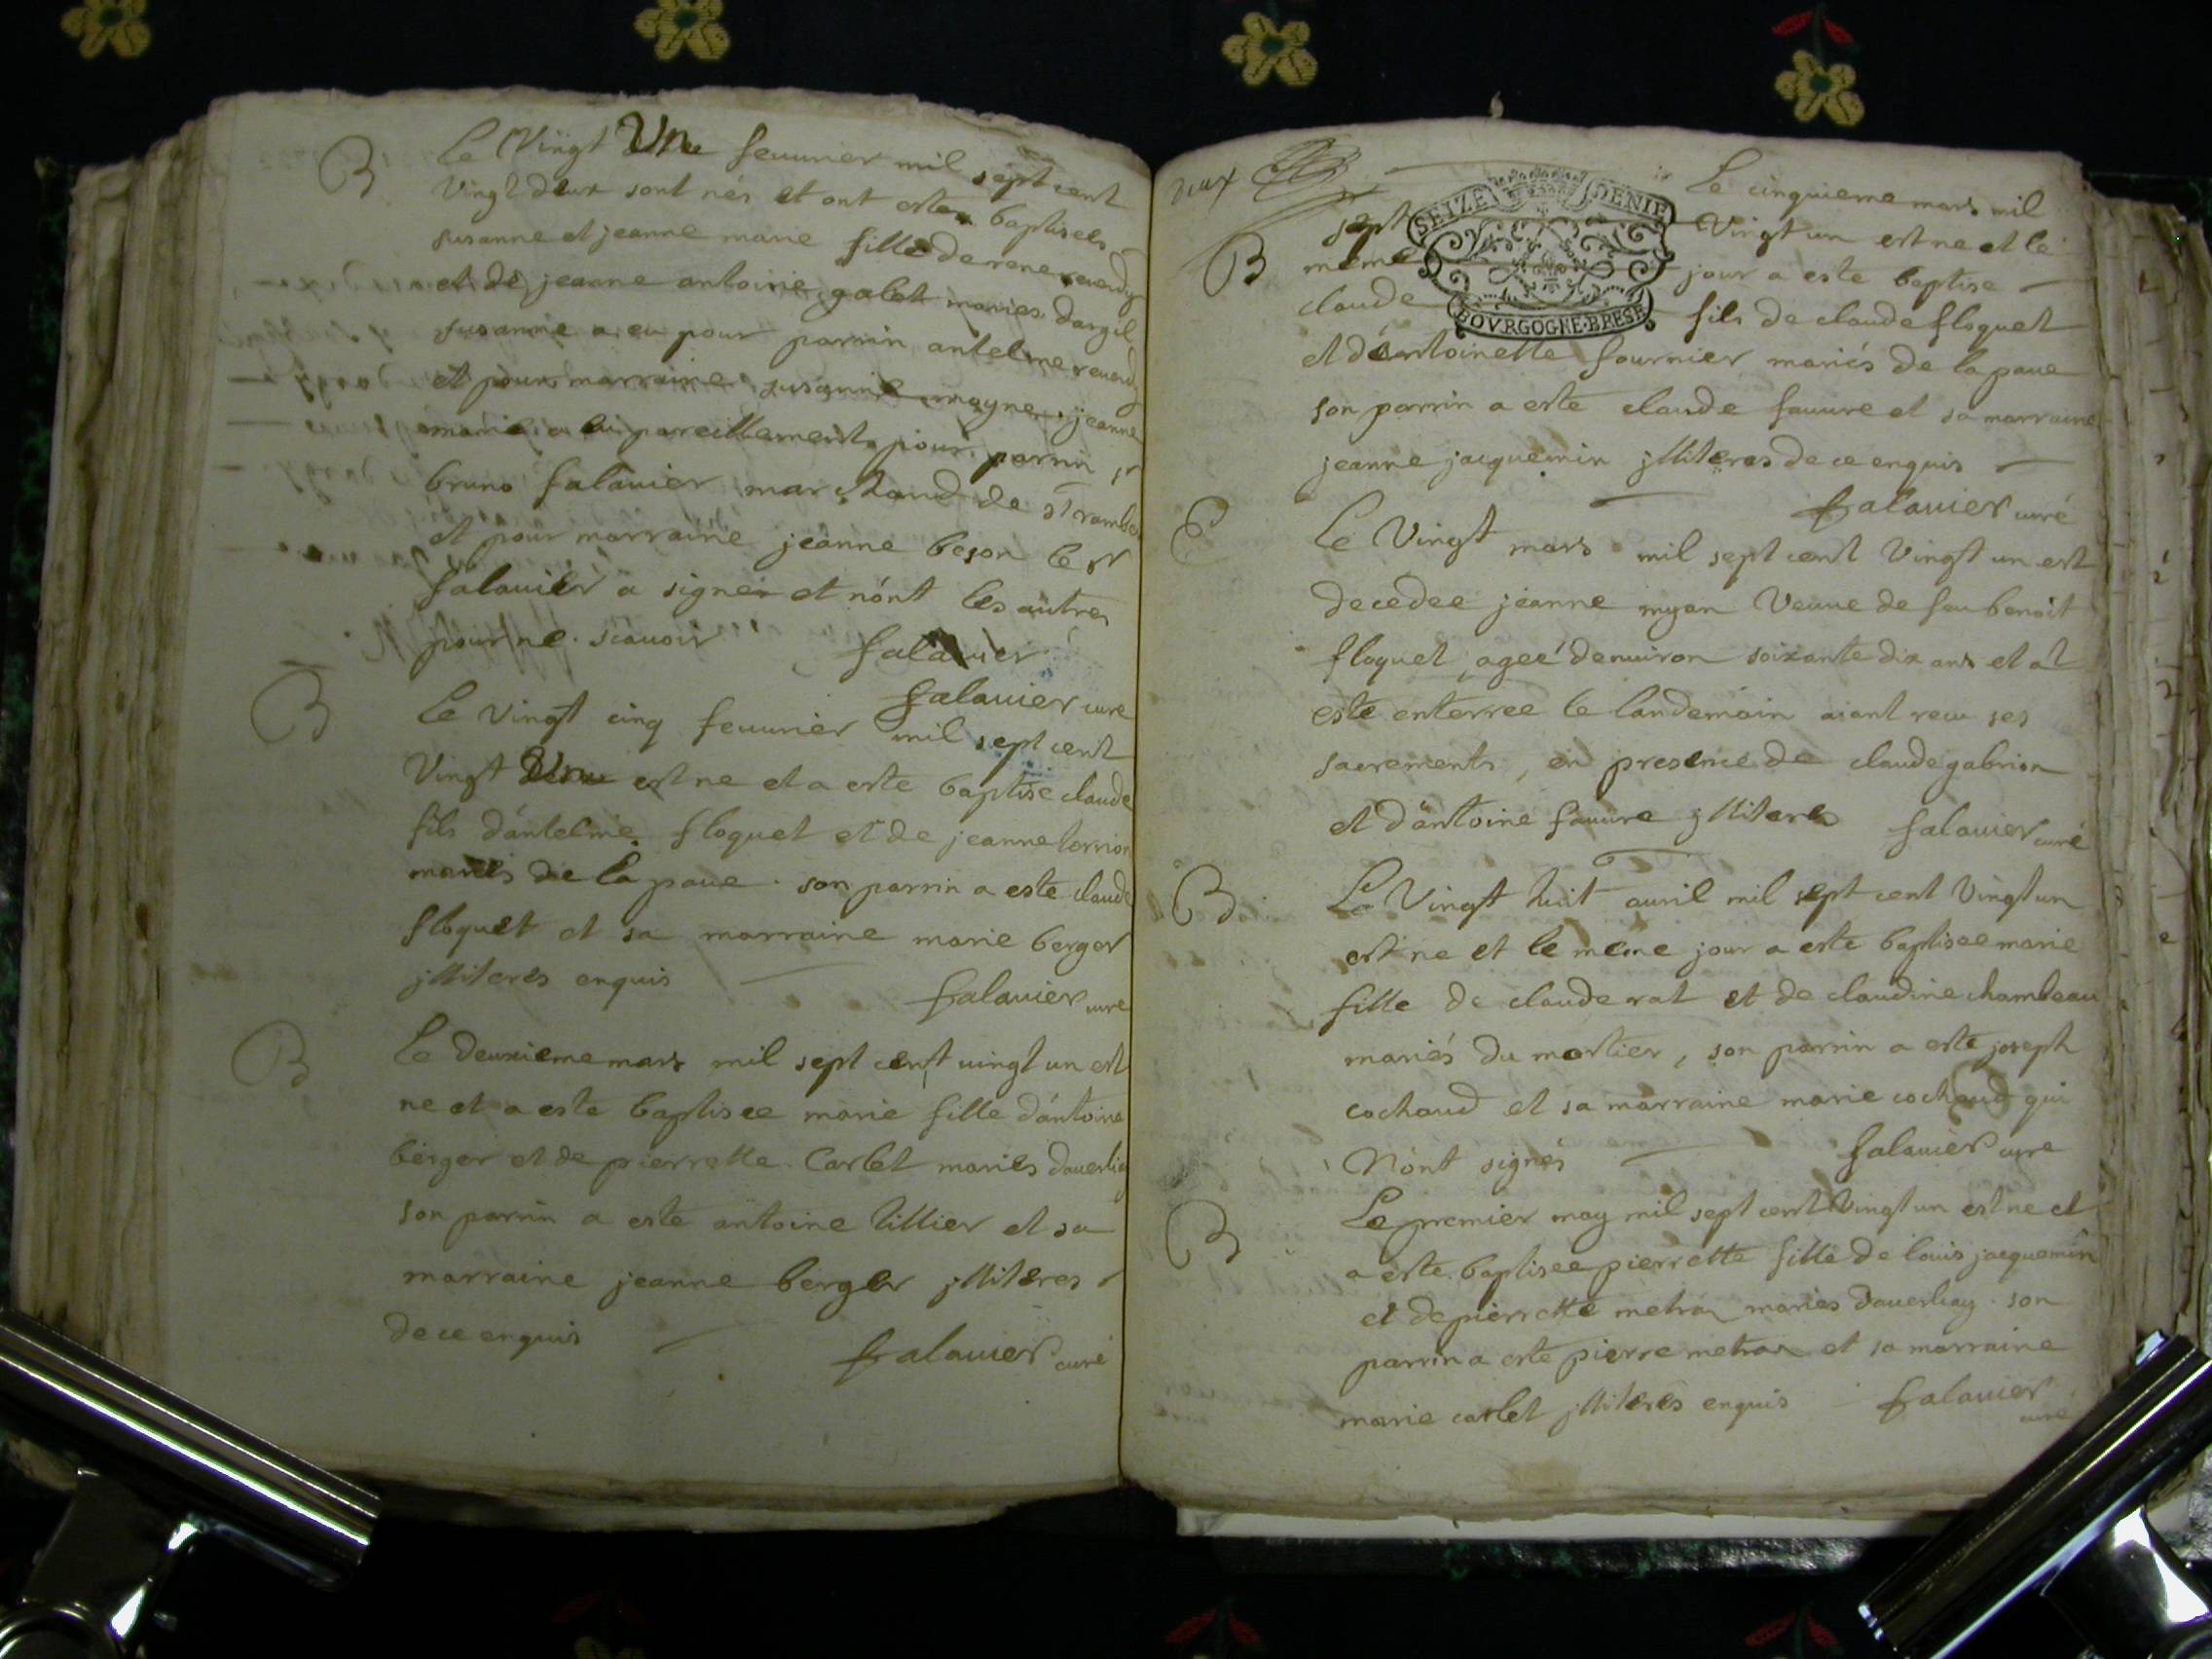 B
Le Vingt Un feuurier mil sept cent
Vingt deux sont nés et ont estes baptisees
susanne et jeanne marie filles de rene reuerdy
et de jeanne antoinie galet maries dargil
susanne a eu pour parrin antelme reuerdy
et pour marraine susanne mayne, jeanne
marie a eu pareillement pour parrin sr
bruno falauier marchand de st rambert
et pour marraine jeanne beson le sr
falauier a signer et nónt les autres
pour ne scauoir falauier
falauier cure
B
Le vingt cinq feuurier mil sept cent
Vingt Un est ne et a este baptise claude
fils dántelme floquet et de jeanne
mariés de la paue. son parrin a este claude
floquet et sa marraine marie berger
jlliteres enquis
falauier cure
B
Le deuxieme mars mil sept cent uingt un est
ne et a este baptisee marie fille dántoine
berger et de pierrette Carlet mariés
son parrin a este antoine tillier et sa
marraine jeanne berger jlliteres
de ce enquis
falauier curé
deux
SEIZE DENIE
BOVRGOGNE·BRESE
Le cinquieme mars mil
sept Vingt un est ne et le
B
meme jour a este baptise
claude fils de claude floquet
et dántoinette fournier mariés de la paue
son parrin a este claude fauure et sa marraine
jeanne jacquemin jlliteres de ce enquis
falauier curé
Le Vingt mars mil sept cent Vingt un est
decedee jeanne myan Veuue de feu benoit
floquet, ageé denuiron soixante dix ans et at
este enterree le landemain aiant recu ses
sacrements, en presence de claude gabrion
et dántoine fauure jlliteres falauier curé
B
Le Vingt huit auril mil sept cent Vingt un
est ne et le meme jour a este baptisee marie
fille de claude rat et de claudine chambeau
mariés du mortier, son parrin a este joseph
cochaud et sa marraine marie cochaud qui
Nónt signés falauier cure
B
Le premier may mil sept cent Vingt un est ne et
a este baptisee pierrette fille de louis jacquemin
et de pierrette metra maries son
parrin a este pierre metra et sa marraine
marie carlet jlliterés enquis falauier
curé